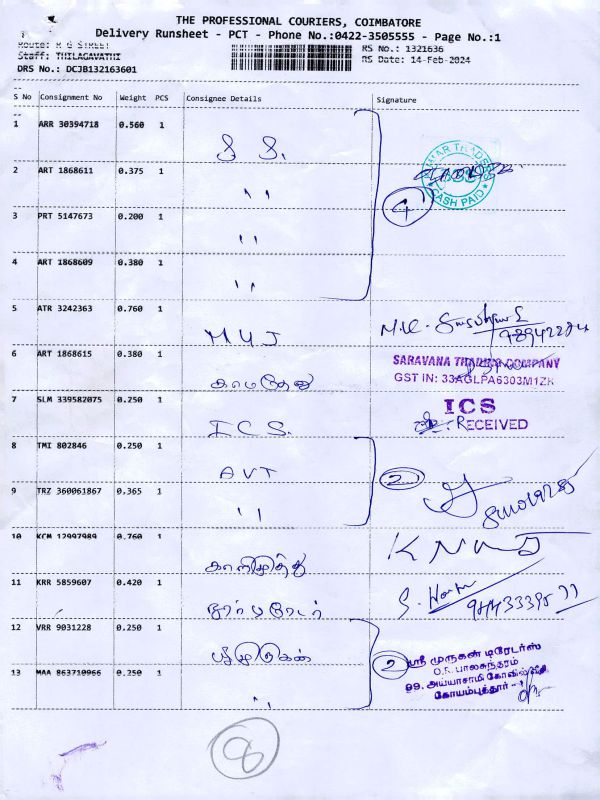 THE PROFESSIONAL COURIERS, COIMBATORE
Delivery Runsheet - PCT - Phone No.:0422-3505555 - Page No.:1
Route: R G STREET
RS No.: 1321636
Staff: THILAGAVATHI
RS Date: 14-Feb-2024
DRS No.: DCJB132163601
S No Consignment No Weight PCS Consignee Details Signature
1 ARR 30394718 0.560 1 S S.
2 ART 1868611 0.375 1 "
CASH PAID
4
3 PRT 5147673 0.200 1 "
4 ART 1868609 0.380 1 "
5 ATR 3242363 0.760 1 M U J M.K.
6 ART 1868615 0.380 1 காமதேனு
SARAVANA TRADING COMPANY
GST IN: 33AGLPA6303M1ZK
7 SLM 339582075 0.250 1 I C S.
ICS
RECEIVED
8 TMI 802846 0.250 1 AVT 2
9 TRZ 360061867 0.365 1 "
10 KCM 12997989 0.760 1 காளிமுத்து
11 KRR 5859607 0.420 1
12 VRR 9031228 0.250 1 2
ஸ்ரீ முருகன் டிரேடர்ஸ்
O.R. பாலசுந்தரம்
99, அய்யாசாமி கோவில் வீதி
கோயம்புத்தூர்
13 MAA 863710966 0.250 1 "
8